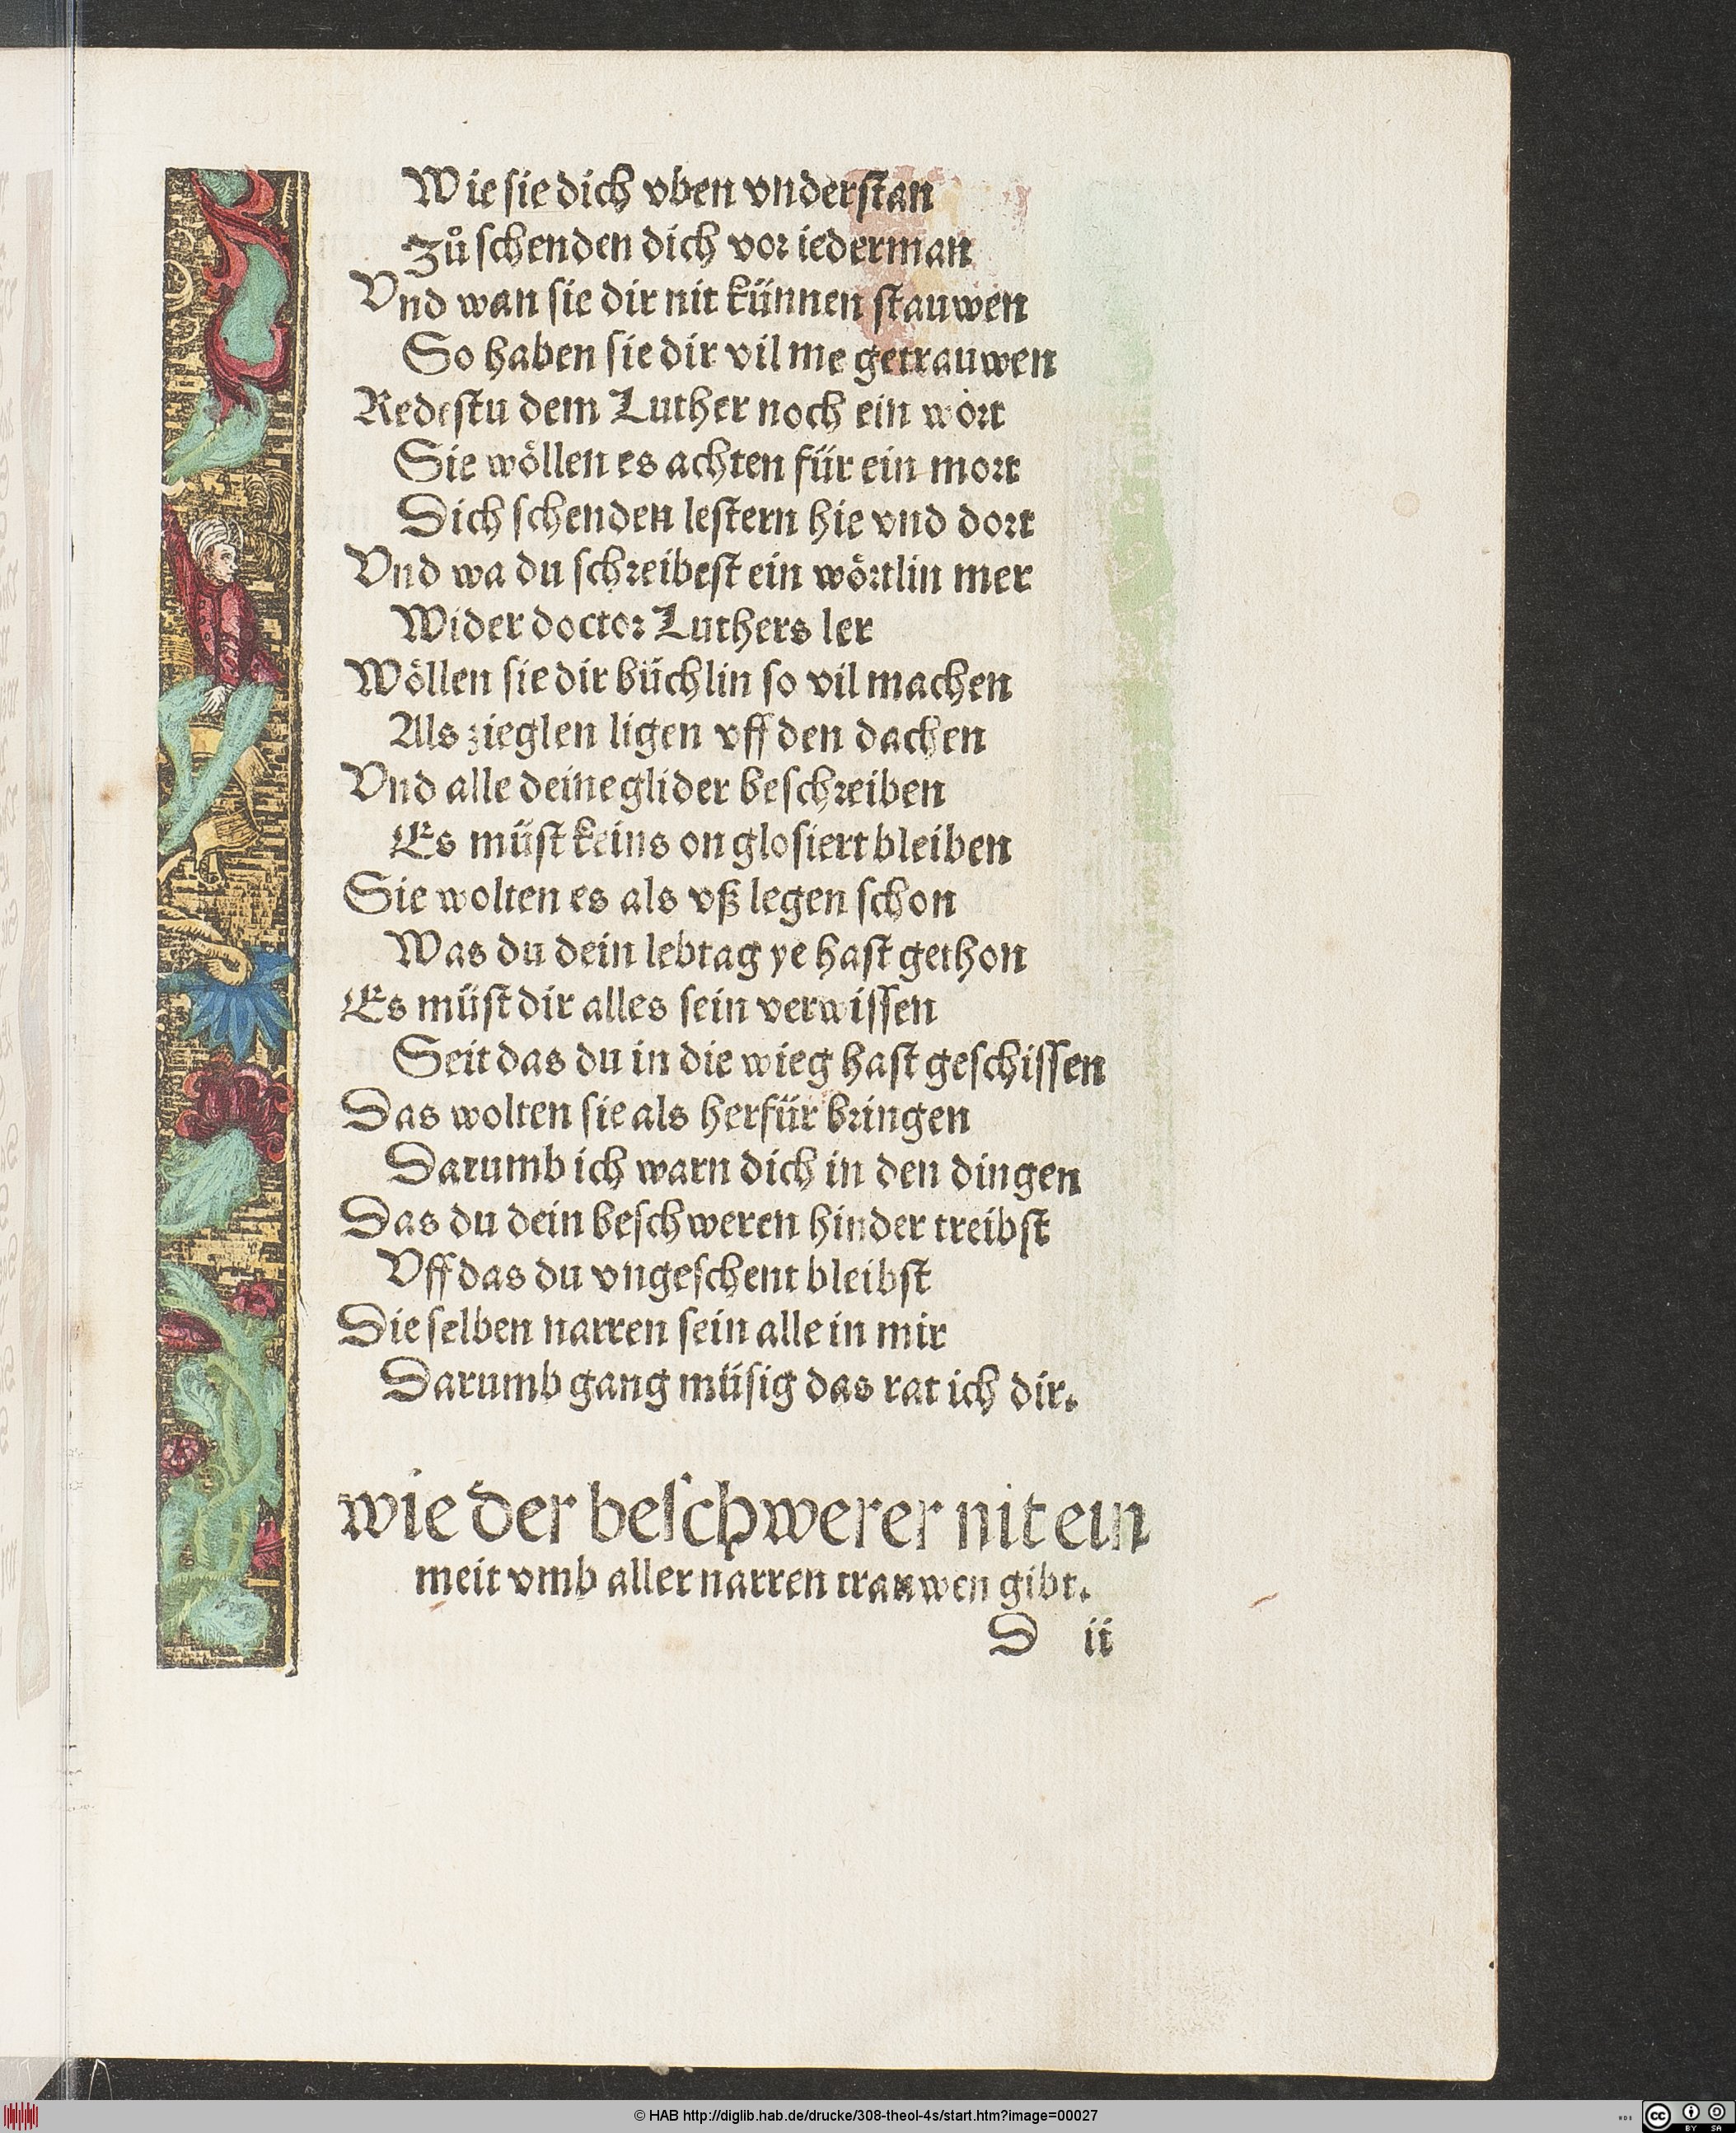 Wie sie dich vben vnderstan
Zů schenden dich vor iederman
Vnd wan sie dir nit künnen stauwen
So haben sie dir vil me getrauwen
Redestu dem Luther noch ein wort
Sie wöllen es achten für ein mort
Dich schenden lestern hie vnd dort
Vnd wa du schreibest ein wörtlin mer
Wider doctor Luthers ler
Wöllen sie dir büchlin so vil machen
Als zieglen ligen vff den dachen
Vnd alle deine glider beschreiben
Es müst keins on glosiert bleiben
Sie wolten es als vß legen schon
Was du dein lebtag ye hast gethon
Es müst dir alles sein verwissen
Seit das du in die wieg hast geschissen
Das wolten sie als herfür bringen
Darumb ich warn dich in den dingen
Das du dein beschweren hinder treibst
Vff das du vngeschent bleibst
Die selben narren sein alle in mir
Darumb gang müsig das rat ich dir.
wie der beschwerer nit ein
meit vmb aller narren trauwen gibt.
D ii
© HAB http://diglib.hab.de/drucke/308-theol-4s/start.htm?image=00027
cc BY SA